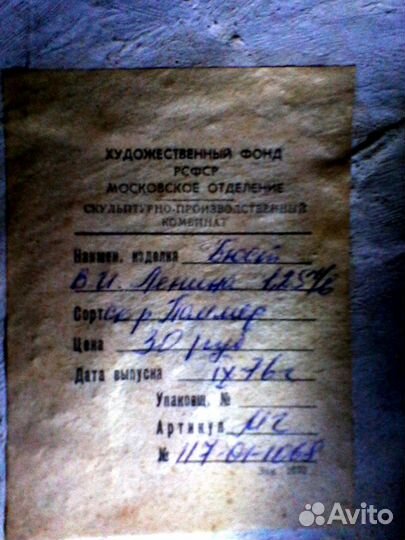 ХУДОЖЕСТВЕННЫЙ ФОНД
РСФСР
МОСКОВСКОЕ ОТДЕЛЕНИЕ
СКУЛЬПТУРНО-ПРОИЗВОДСТВЕННЫЙ
КОМБИНАТ
Наимен. изделия Бюст
В.И. Ленина
Сорт ск-р
Цена 30 руб
Дата выпуска IX-76 г
Упаковщ. №
Артикул
№ 117-01-1068
Avito